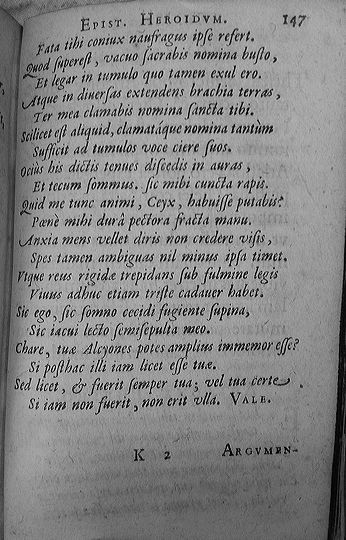 EPIST. HEROIDVM. 147
Fata tibi coniux naufragus ipse refert.
Quod superest, vacuo sacrabis nomina busto,
Et legar in tumulo quo tamen exul ero.
Atque in diversas extendens brachia terras,
Ter mea clamabis nomina sancta tibi.
Scilicet est aliquid, clamatáque nomina tantùm
Sufficit ad tumulos voce ciere suos.
Ociùs his dictis tenues discedis in auras,
Et tecum sommus. sic mihi cuncta rapis.
Quid me tunc animi, Ceyx, habuisse putabis?
Pœnè mihi durâ pectora fracta manu.
Anxia mens vellet diris non credere visis,
Spes tamen ambiguas nil minus ipsa timet.
Vtque reus rigidæ trepidans sub fulmine legis
Viuus adhuc etiam triste cadauer habet.
Sic ego, sic somno cecidi fugiente supina,
Sic iacui lecto semisepulta meo.
Chare, tuæ Alcyones potes amplius immemor esse?
Si posthac illi iam licet esse tuæ.
Sed licet, & fuerit semper tua; vel tua certe
Si iam non fuerit, non erit vlla. VALE.
K 2 ARGVMEN-